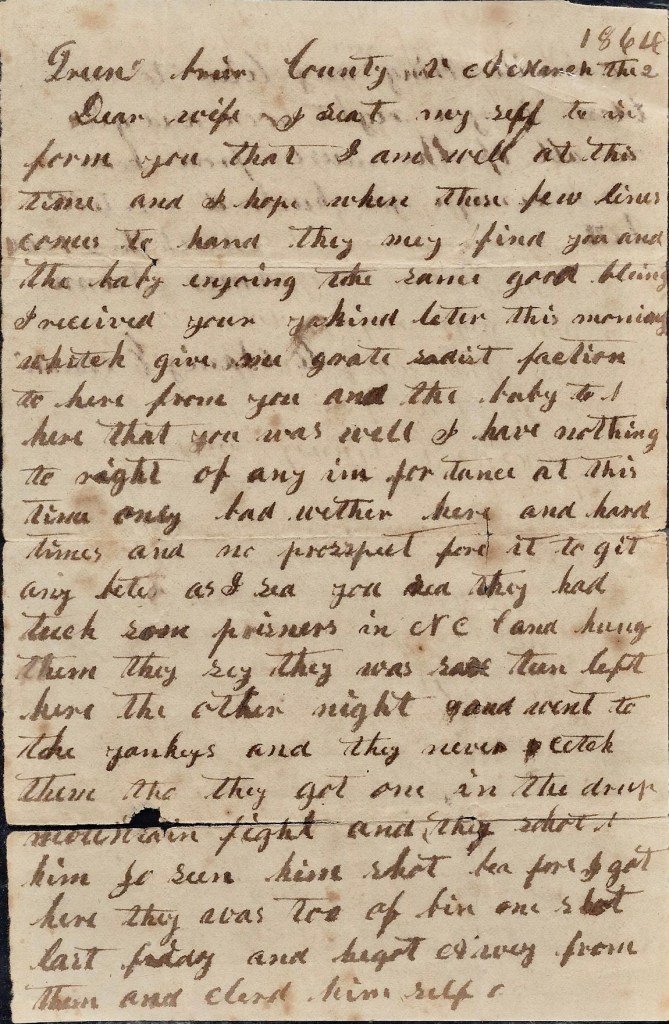 1864
Green brier County V a March the 2
Dear wife I seat my self to in
form you that I am well at this
time and I hope when these few lines
comes to hand they mey find you and
the baby enjoing the same good blsing
I received your kind leter this morning
whitch give me grate sadist faction
to here from you and the baby to
here that you was well I have nothing
to right of any im for tance at this
time only bad wether here and hard
times and no prospect fore it to git
any beter as I sed you sed they had
tuck som prisners in N C and hung
them they sey they was teen left
here the other night and went to
the yankeys and they never cetch
them tho they got one in the drup
mountain fight and they shot
him Jo seen him shot bea fore I got
here they was too of bin one shot
last friday and begot Awey from
them and clerd him self